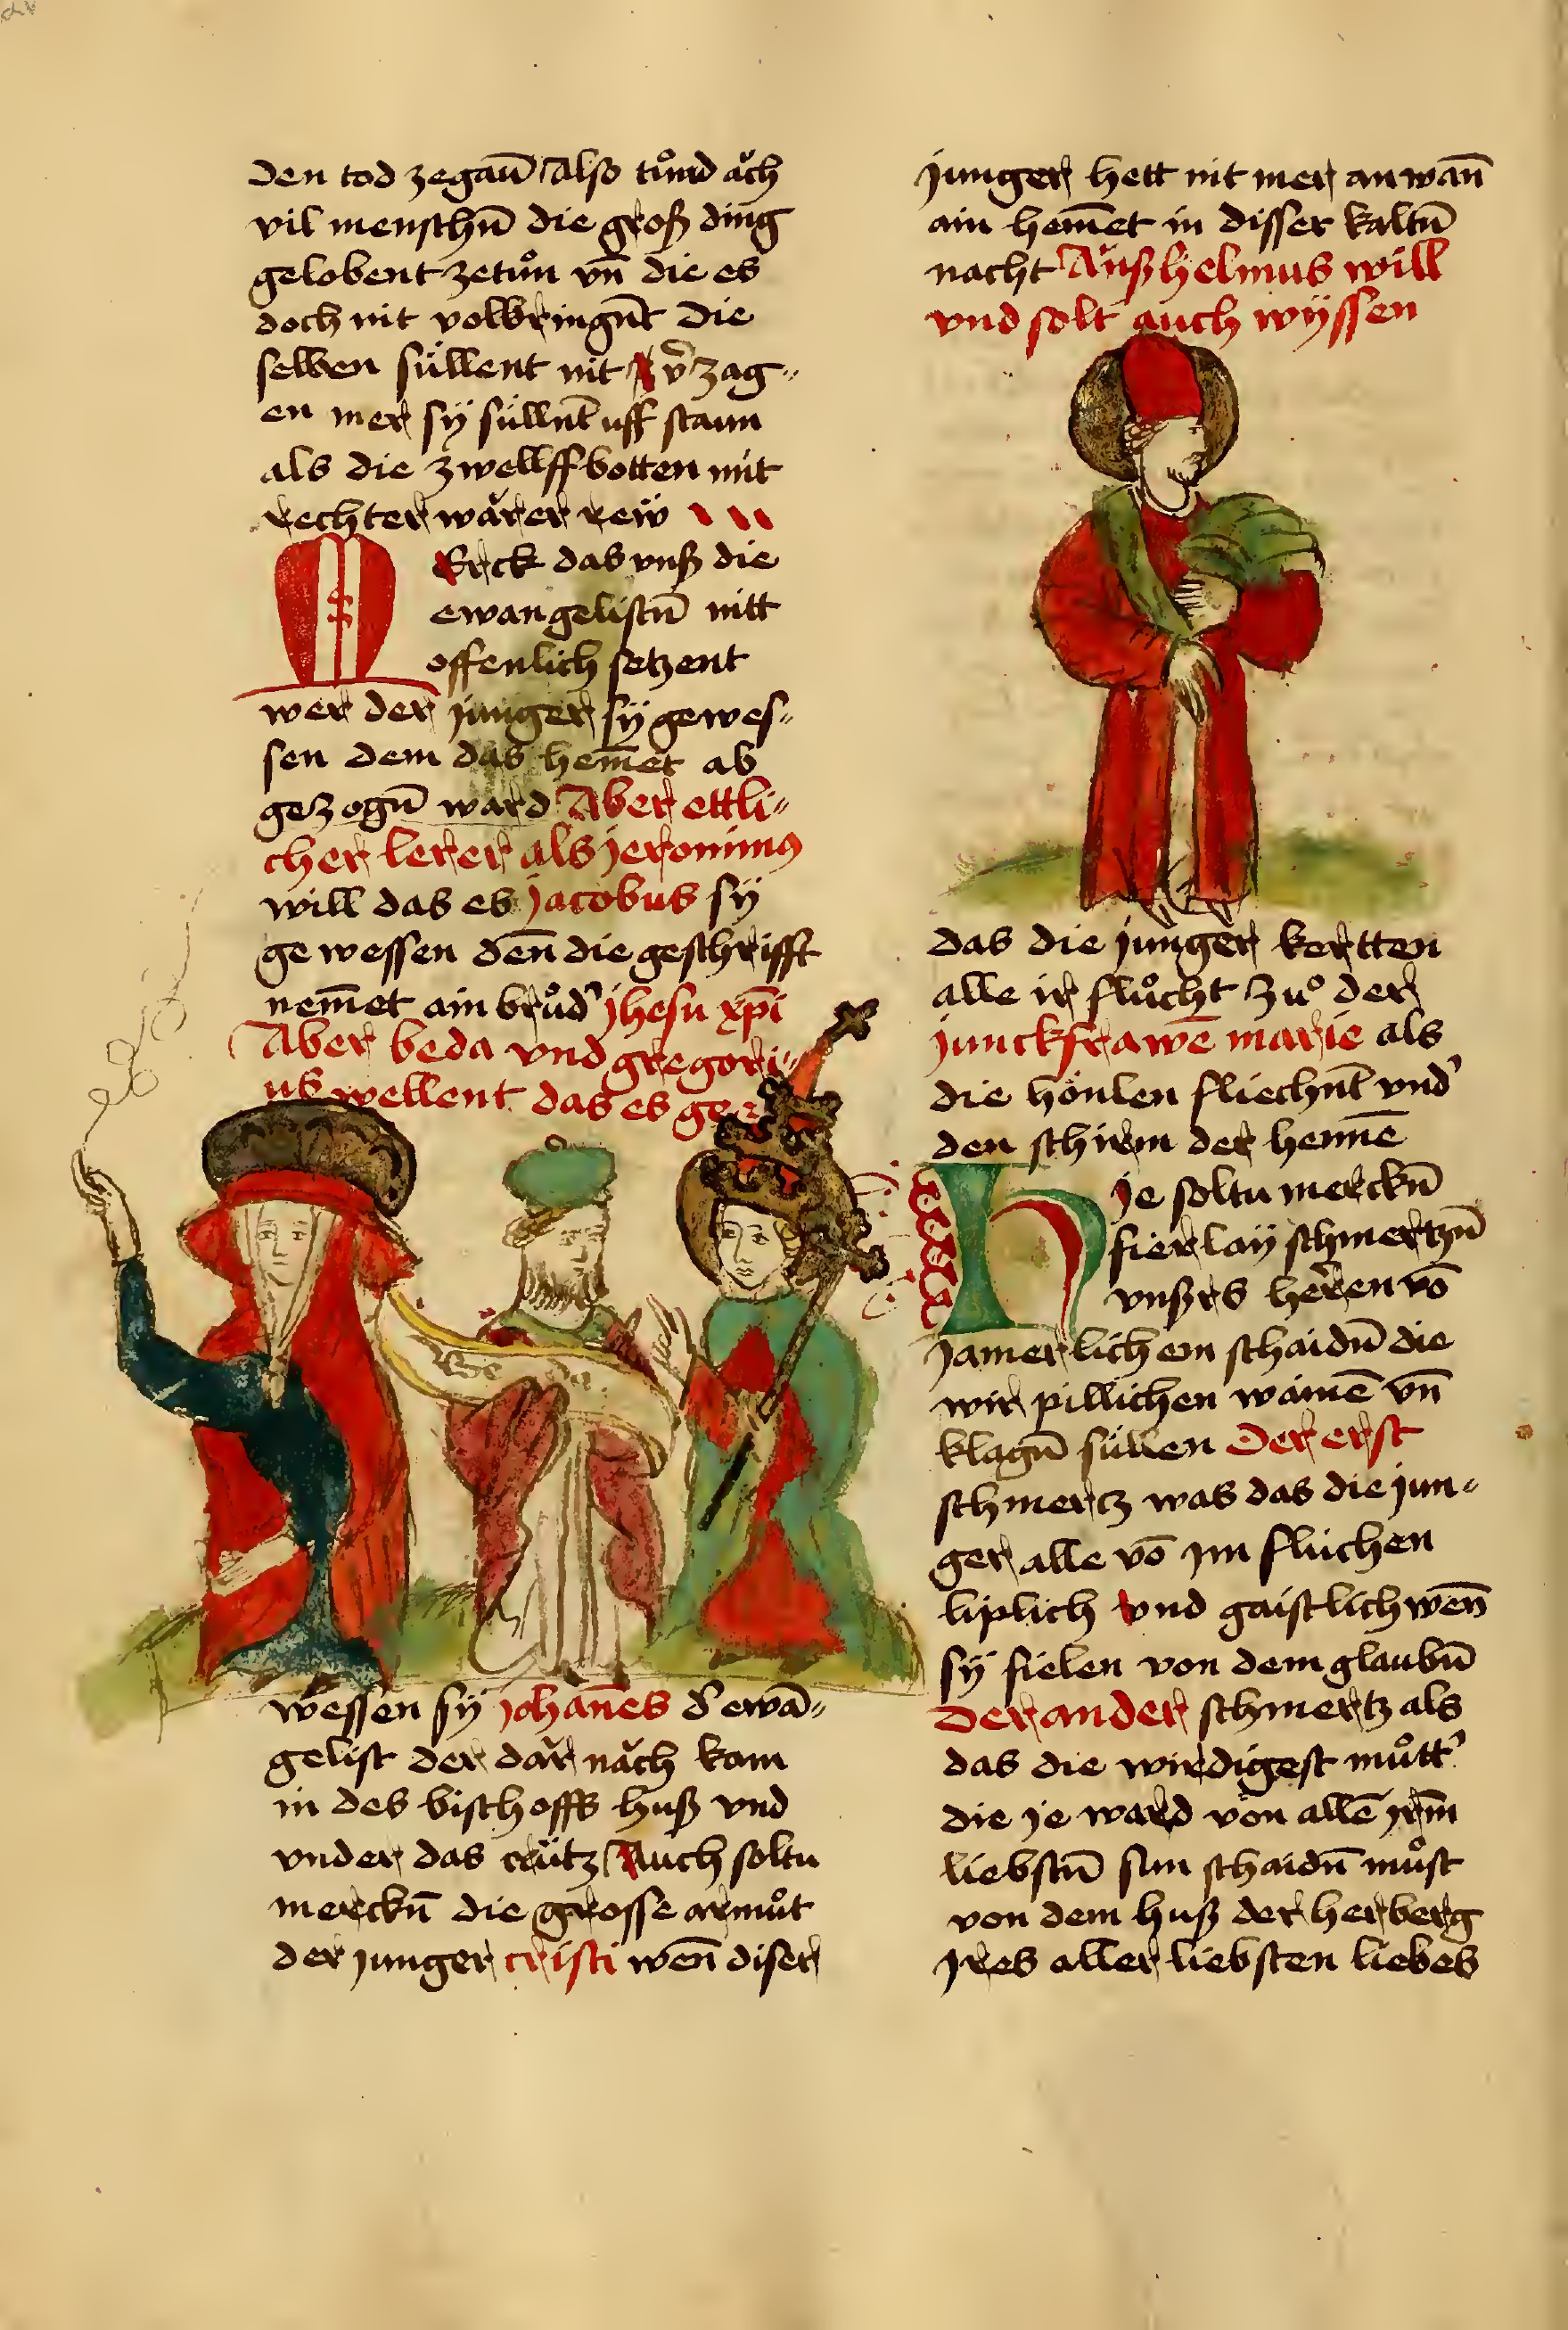 den tod zegaū Also tůnd ǎch
vil menschn̄ die groß ding
gelobent zetůn vn̄ die es
doch nit volbringn̄t Die
selben süllent nit v̄zag〟
en mer sÿ süllnt̄ uff staun
als die zwellffbotten mit
rechter wǎrer reẅ
Merck das vnß die
ewangelistn̄ nitt
offenlich setzent
wer der junger sÿ gewes〟
sen dem das hem̄et ab
gezogn̄ ward Aber ettli〟
cher lerer als jeronimꝰ
will das es jacobus sÿ
gewessen den̄ die geschrifft
nem̄et ain brůd' jhesu xp̄i
Aber beda vnd gregori〟
us wellent das es ge
Be da
wessen sÿ johan̄es d' ewā〟
gelist der dǎr nǎch kam
in des bischoffs huß vnd
vnder das crütz Auch soltu
merckn̄ die grosse armůt
der junger cristi wen̄ diser
junger hett nit mer an wan̄
ain hem̄et in disser kaltn̄
nacht Ǎnßhelmus will
vnd solt auch wÿssen
das die junger kertten
alle ir flůcht zů der
junckfrawē marie als
die hönlen fliechn̄t vnd'
den schirm der hennē
Hje soltu merckn̄
fierlaÿ schmertzn̄
vnßrs heren vō
jamerlichem schaidn̄ die
wir pillichen wainē vn̄
klagn̄ süllen Der erst
schmertz was das die jun〟
ger alle vō jm fluchen
liplich vnd gaistlich wen̄
sÿ fielen von dem glaubn̄
Der ander schmertz als
das die wirdigest můtt'
die je ward von allē jrm̄
liebstn̄ sun schaidn̄ můst
von dem huß der herberg
jres aller liebsten liebes